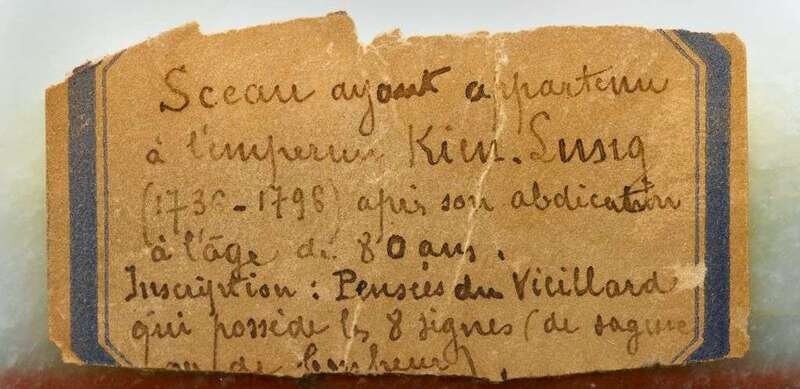 Sceau ayant appartenu
à l'empereur Kien-Lung
(1736-1796) après son abdication
à l'âge de 80 ans.
Inscription : Pensées du Vieillard
qui possède les 8 signes (de sagesse
ou de bonheur).